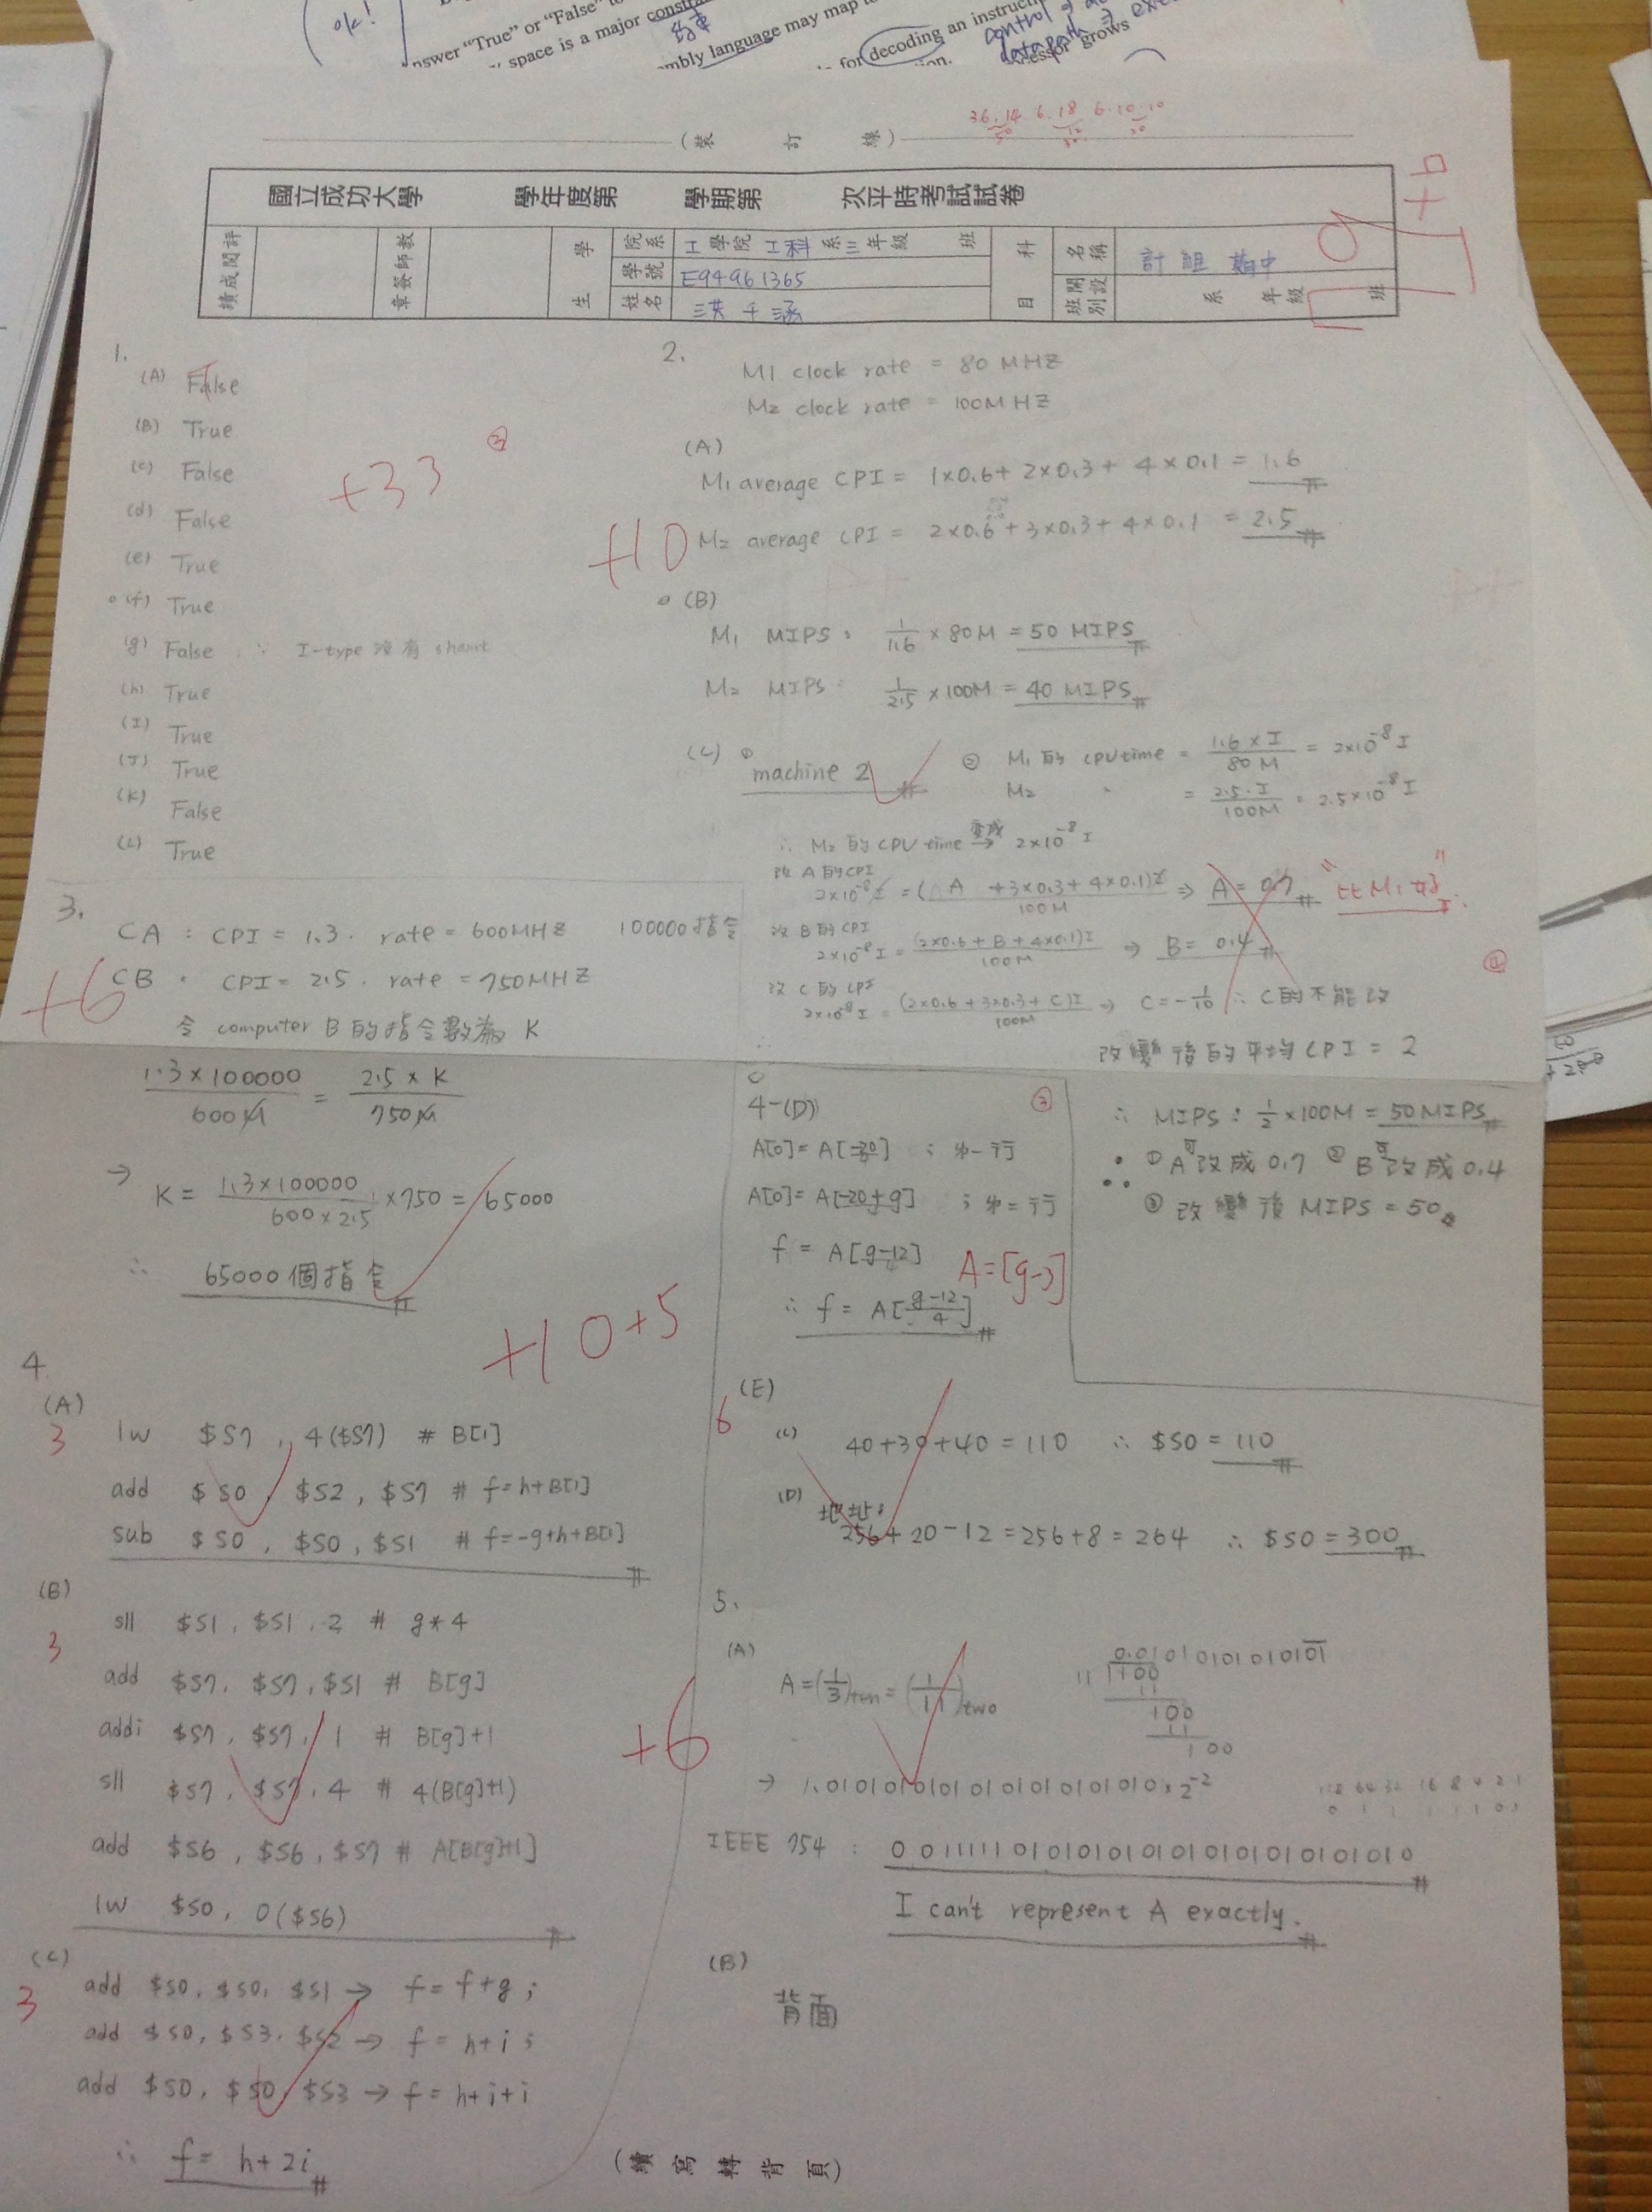 ok!
nswer "True" or "False"
space is a major
約束
mbly language may map
for decoding an instruc
control
datapath
essor grows
36. 14 6. 18 6. 10. 10
(裝 訂 線)
國立成功大學 學年度第 學期第 次平時考試試卷
績成閱評
章簽師教
學生
院系 工學院 工科系三年級 班
學號 E94961365
姓名 洪千涵
科目
名稱 計組 期中
班別 開設 系 年級 班
1.
(A) False
(B) True
(c) False
(d) False
(e) True
(f) True
(g) False ∵ I-type 沒有 shamt
(h) True
(I) True
(J) True
(K) False
(L) True
+33
2.
M1 clock rate = 80 MHZ
M2 clock rate = 100MHZ
(A)
M1 average CPI = 1×0.6+ 2×0.3+ 4×0.1 = 1.6
M2 average CPI = 2×0.6+3×0.3+4×0.1 = 2.5
+10
(B)
M1 MIPS: 1/1.6 ×80M = 50 MIPS
M2 MIPS: 1/2.5 ×100M = 40 MIPS
(C) ① machine 2
② M1的 CPU time = 1.6×I/80M = 2×10^-8 I
M2 〃 = 2.5·I/100M = 2.5×10^-8 I
∴ M2的CPU time 變成→ 2×10^-8 I
改A的CPI
2×10^-8 I = (A+3×0.3+4×0.1)I/100M ⇒ A=0.7
"比M1好"
改B的CPI
2×10^-8 I = (2×0.6+B+4×0.1)I/100M ⇒ B= 0.4
改C的CPI
2×10^-8 I = (2×0.6+3×0.3+C)I/100M ⇒ C=-1/10 ∴C的不能改
改變後的平均CPI = 2
∴ MIPS: 1/2 ×100M = 50MIPS
∴ ①A可改成0.7 ②B可改成0.4
③改變後MIPS=50
3.
CA : CPI = 1.3. rate = 600MHZ 100000指令
CB : CPI = 2.5. rate = 750MHZ
+6
令 computer B的指令數為 K
1.3×100000/600M = 2.5×K/750M
→ K = 1.3×100000/600×2.5 ×750 = 65000
∴ 65000個指令
+10+5
4.
(A)
3
lw $S7, 4($S7) # B[1]
add $S0, $S2, $S7 # f=h+B[1]
sub $S0, $S0, $S1 # f=-g+h+B[1]
(B)
3
sll $S1, $S1, 2 # g*4
add $S7, $S7, $S1 # B[g]
addi $S7, $S7, 1 # B[g]+1
sll $S7, $S7, 4 # 4(B[g]+1)
add $S6, $S6, $S7 # A[B[g]+1]
lw $S0, 0($S6)
(C)
3
add $S0, $S0, $S1 → f=f+g;
add $S0, $S3, $S2 → f=h+i;
add $S0, $S0, $S3 → f=h+i+i
∴ f= h+2i
4-(D)
A[0]=A[-20] ; 第一行
A[0]=A[-20+g] ; 第二行
f = A[g-12]
A=[g-3]
∴ f = A[g-12/4]
(E)
6
(C) 40+30+40 = 110 ∴ $S0 = 110
(D) 地址: 256+20-12=256+8=264 ∴ $S0=300
5.
(A)
A=(1/3)ten=(1/11)two
0.0101010101010101
11 1100
11
100
11
100
+6
→ 1.01010101010101010101010×2^-2
128 64 32 16 8 4 2 1
0 1 1 1 1 1 0 1
IEEE 754 : 0 01111101010101010101010101010
I can't represent A exactly.
(B)
背面
(續寫轉背頁)